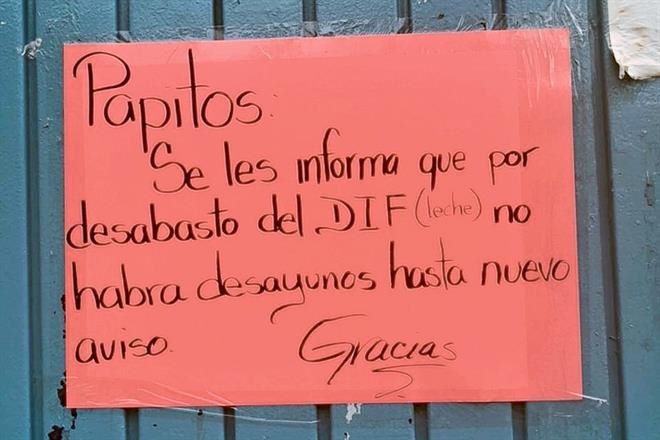 Papitos:
Se les informa que por
desabasto del DIF (leche) no
habra desayunos hasta nuevo
aviso. Gracias